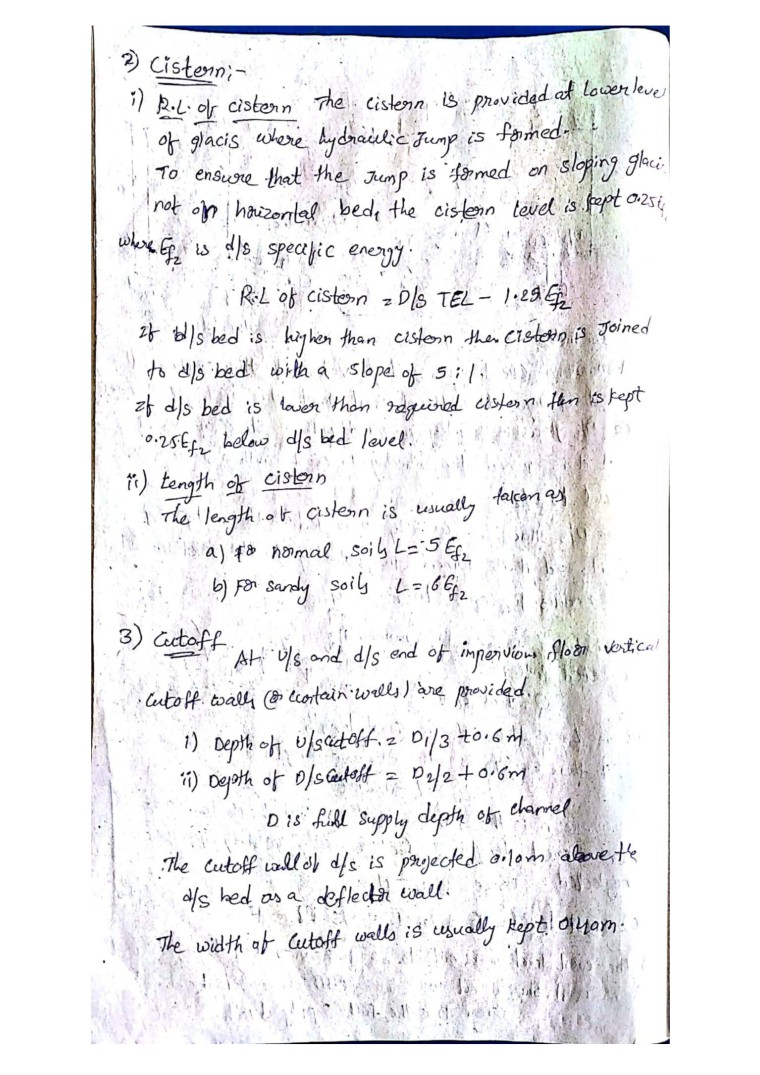 2) Cistern;-
i) R.L. of cistern The cistern is provided at lower leve
of glacis where hydraulic Jump is formed.
To ensure that the Jump is formed on sloping glaci
not on horizontal bed, the cistern level is kept 0.25E
where Ef2 is d/s specific energy.
R.L of cistern = D/S TEL - 1.25 Ef2
If d/s bed is higher than cistern the cistern is Joined
to d/s bed with a slope of 5:1.
If d/s bed is lower than required cistern then is kept
0.25Ef2 below d/s bed level.
ii) Length of cistern
The length of cistern is usually taken as
a) for normal soils L = 5 Ef2
b) For sandy soils L = 6Ef2
3) Cutoff
At U/s and d/s end of impervious floor vertical
cutoff walls (or curtain walls) are provided.
i) Depth of U/s cutoff = D1/3 + 0.6m
ii) Depth of D/s cutoff = D2/2 + 0.6m
D is full supply depth of channel
The cutoff wall of d/s is projected 0.10m above the
d/s bed as a deflector wall.
The width of cutoff walls is usually kept 0.40m.